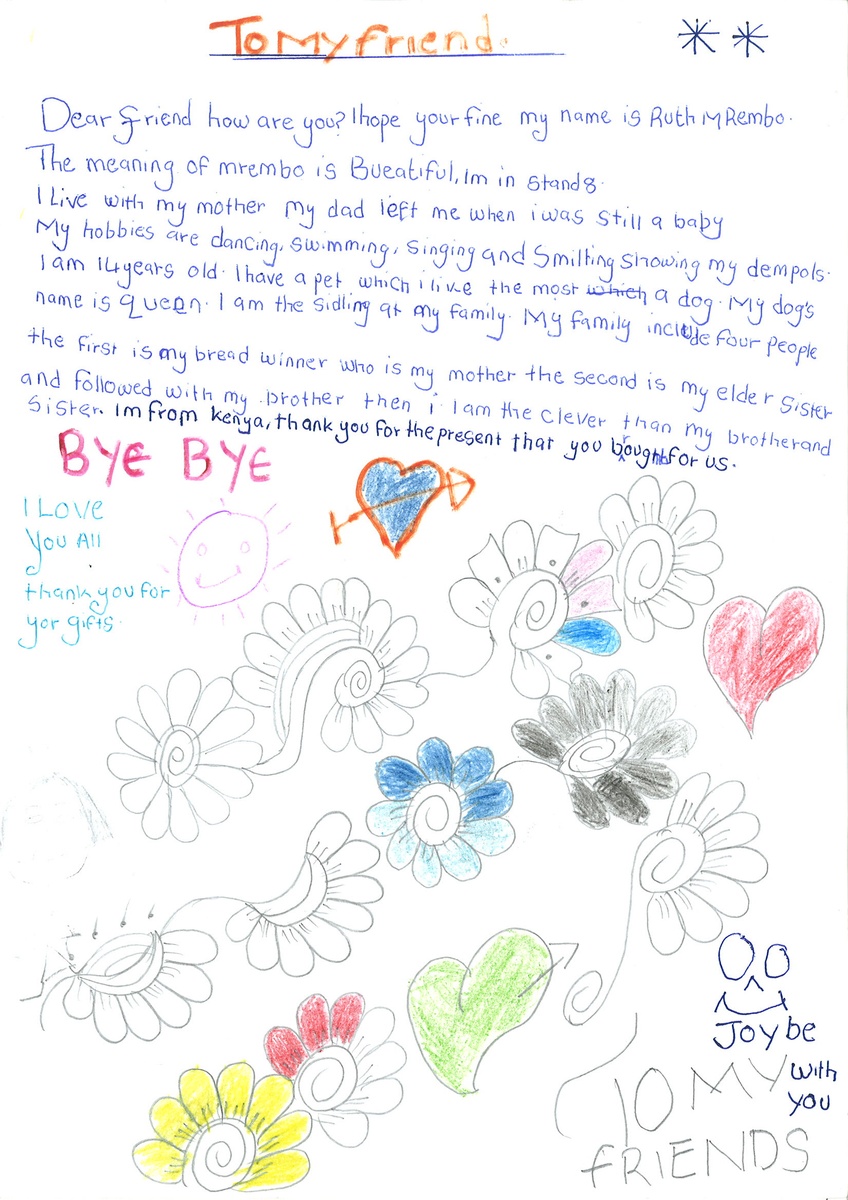 To My friend.
Dear friend how are you? I hope your fine my name is Ruth MRembo.
The meaning of mrembo is Bueatiful, Im in Stand 8.
I Live with my mother my dad left me when i was still a baby
My hobbies are dancing, swimming, singing and Smilting showing my dempols.
I am 14 years old. I have a pet which i like the most which a dog. My dog's
name is queen. I am the sidling at my family. My family include four people
the first is my bread winner who is my mother the second is my elder sister
and followed with my brother then i I am the clever than my brother and
Sister. Im from Kenya, thank you for the present that you brought for us.
BYE BYE
I Love
You All
thank you for
yor gifts.
Joy be
with
you
TO MY
fRIENDS